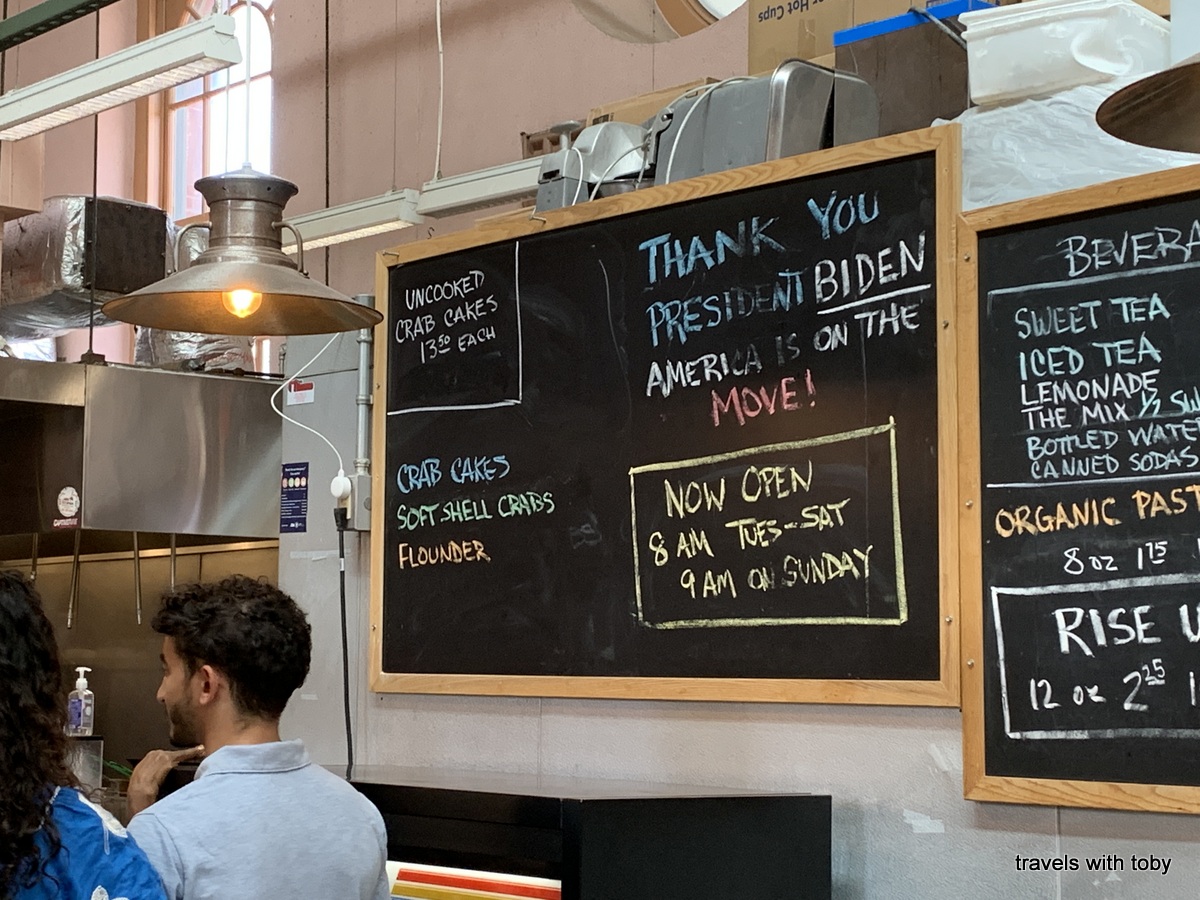 Hot Cups
UNCOOKED
CRAB CAKES
13 50 EACH
CRAB CAKES
SOFT SHELL CRABS
FLOUNDER
THANK YOU
PRESIDENT BIDEN
AMERICA IS ON THE
MOVE!
NOW OPEN
8 AM TUES-SAT
9 AM ON SUNDAY
SWEET TEA
ICED TEA
LEMONADE
THE MIX 1/2
BOTTLED
CANNED SODAS
ORGANIC
8 oz 1 75
RISE
12 oz 2 25
travels with toby